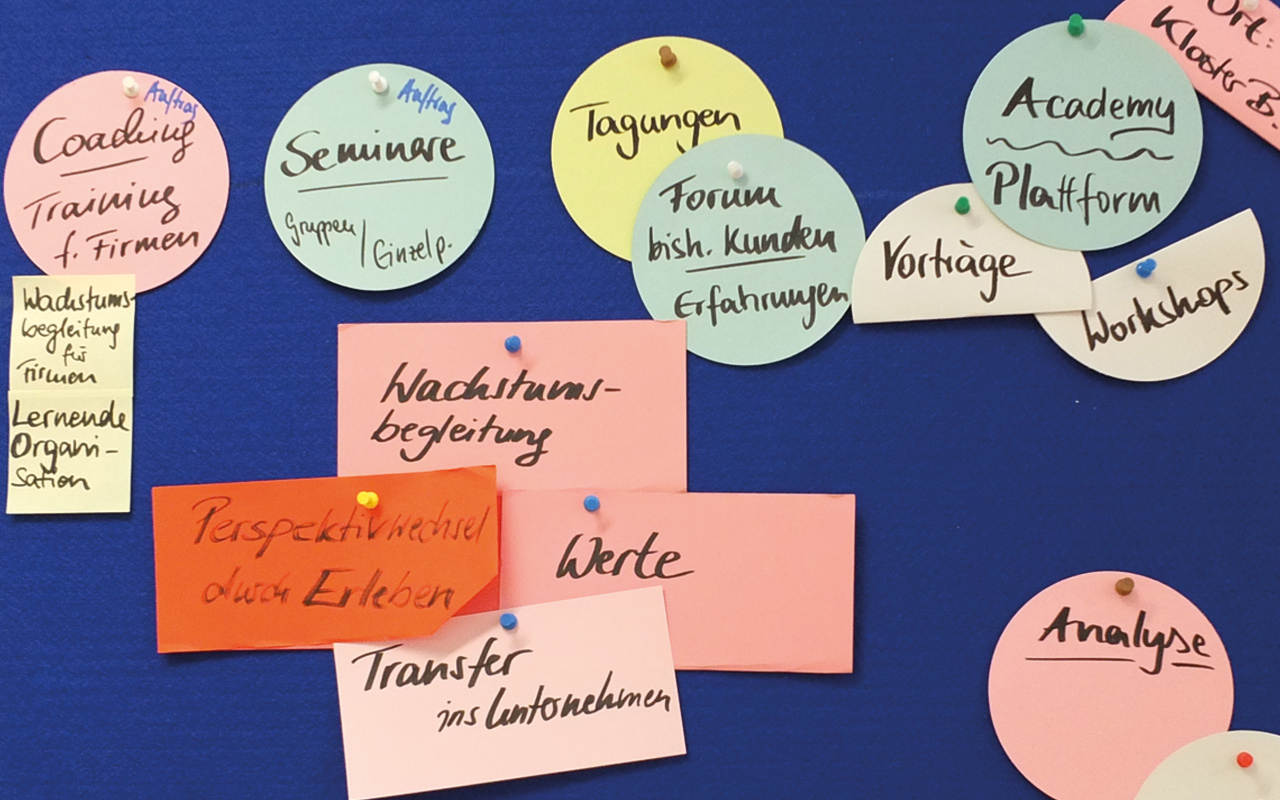 Auftrag
Coaching
Training
f. Firmen
Wachstums-
begleitung
für
Firmen
Lernende
Organi-
sation
Auftrag
Seminare
Gruppen/Einzelp.
Tagungen
Forum
bish. Kunden
Erfahrungen
Vorträge
Academy
Plattform
Workshops
Ort:
Kloster B.
Wachstums-
begleitung
Perspektivwechsel
durch Erleben
Werte
Transfer
ins Unternehmen
Analyse